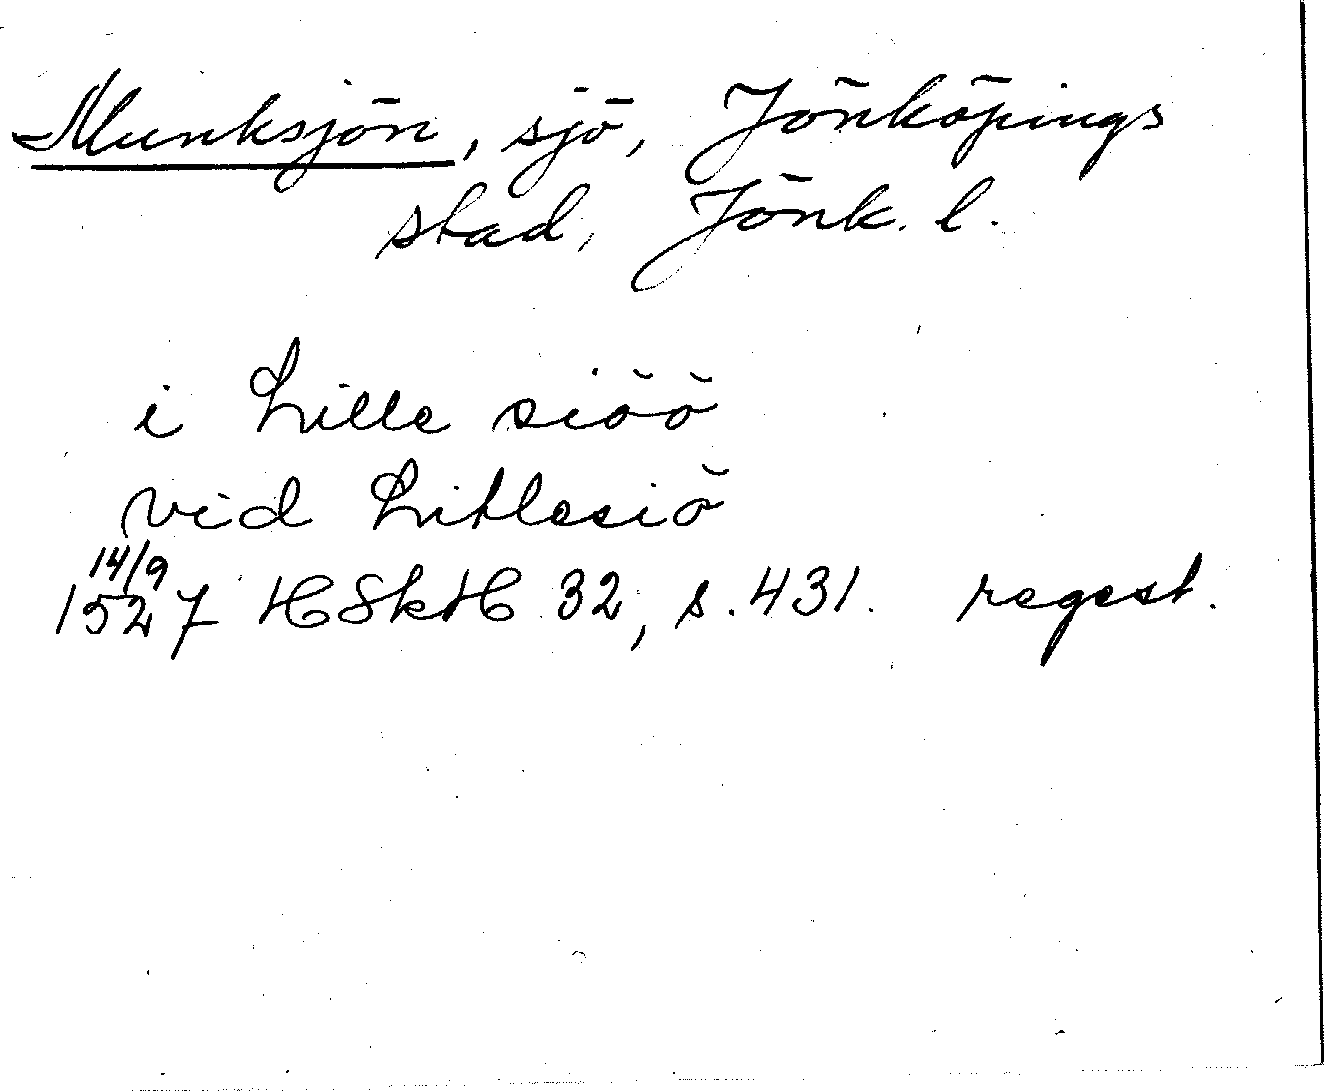 Munksjön, sjö, Jönköpings
stad, Jönk. l.
i Lille siöö
vid Litlesiö
14/9
1527 HSkH 32, s. 431. regest.